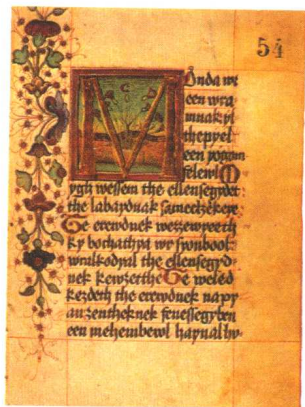 54
Monda we
een wra
mnak yl
thepyel
een yogom
felewl M
ygh wessem the ellensegydet
the labaydnak
Te erewdnek wezzeweryeeth
ky bochathya we Syonbool
wralkodyal the ellensegyd
nek kewzette Te weled
kezdeth the erewdnek napy
an zentheknek fenessegyben
een mehembewl haynalby